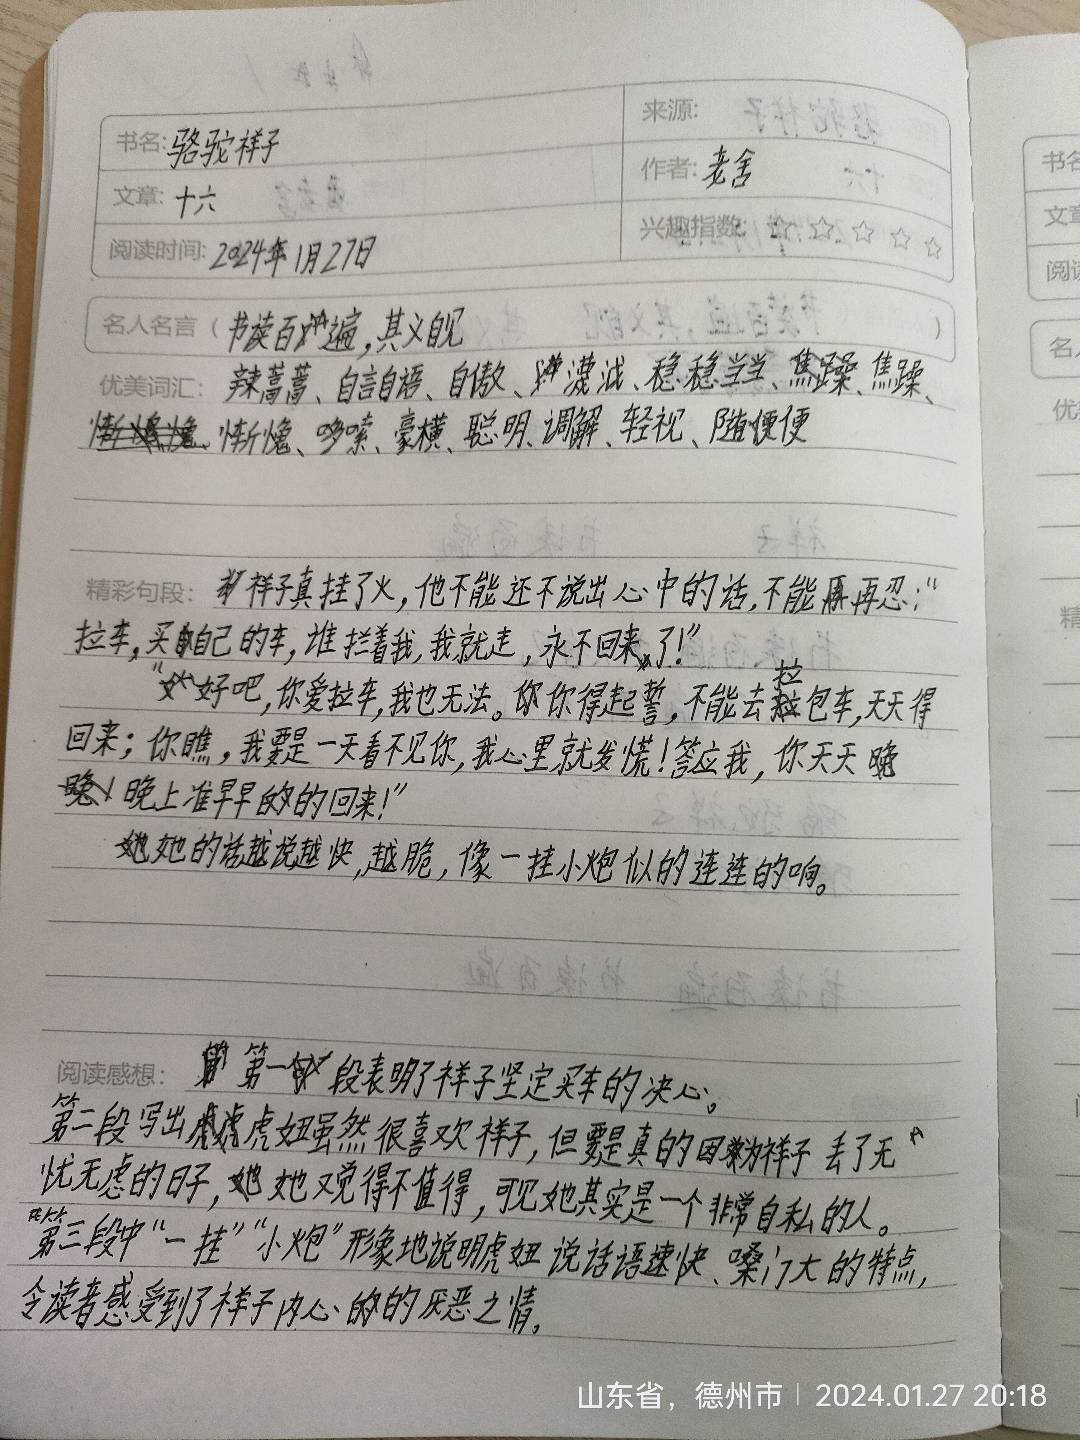 书名: 骆驼祥子
来源:
文章: 十六
作者: 老舍
阅读时间: 2024年1月27日
兴趣指数: ☆ ☆ ☆ ☆ ☆
名人名言（书读百遍,其义自见）
优美词汇: 辣蒿蒿、自言自语、自傲、漠、稳稳当当、焦躁、焦躁、
惭愧、哆嗦、豪横、聪明、调解、轻视、随便
精彩句段: 祥子真挂了火,他不能还不说出心中的话,不能再忍:“
拉车,买自己的车,谁拦着我,我就走,永不回来了!”
“好吧,你爱拉车,我也无法。你得起誓,不能去拉包车,天天得
回来;你瞧,我要是一天看不见你,我心里就发慌!答应我,你天天
晚上准早早的回来!”
她的话越说越快,越脆,像一挂小炮似的连连的响。
阅读感想: 第一段表明了祥子坚定买车的决心。
第二段写出虎妞虽然很喜欢祥子,但要是真的因为祥子丢了无
忧无虑的日子,她又觉得不值得,可见她其实是一个非常自私的人。
第三段中“一挂”“小炮”形象地说明虎妞说话语速快、嗓门大的特点,
令读者感受到了祥子内心的厌恶之情。
书名
文章
阅读
名人
优
精
山东省，德州市 | 2024.01.27 20:18